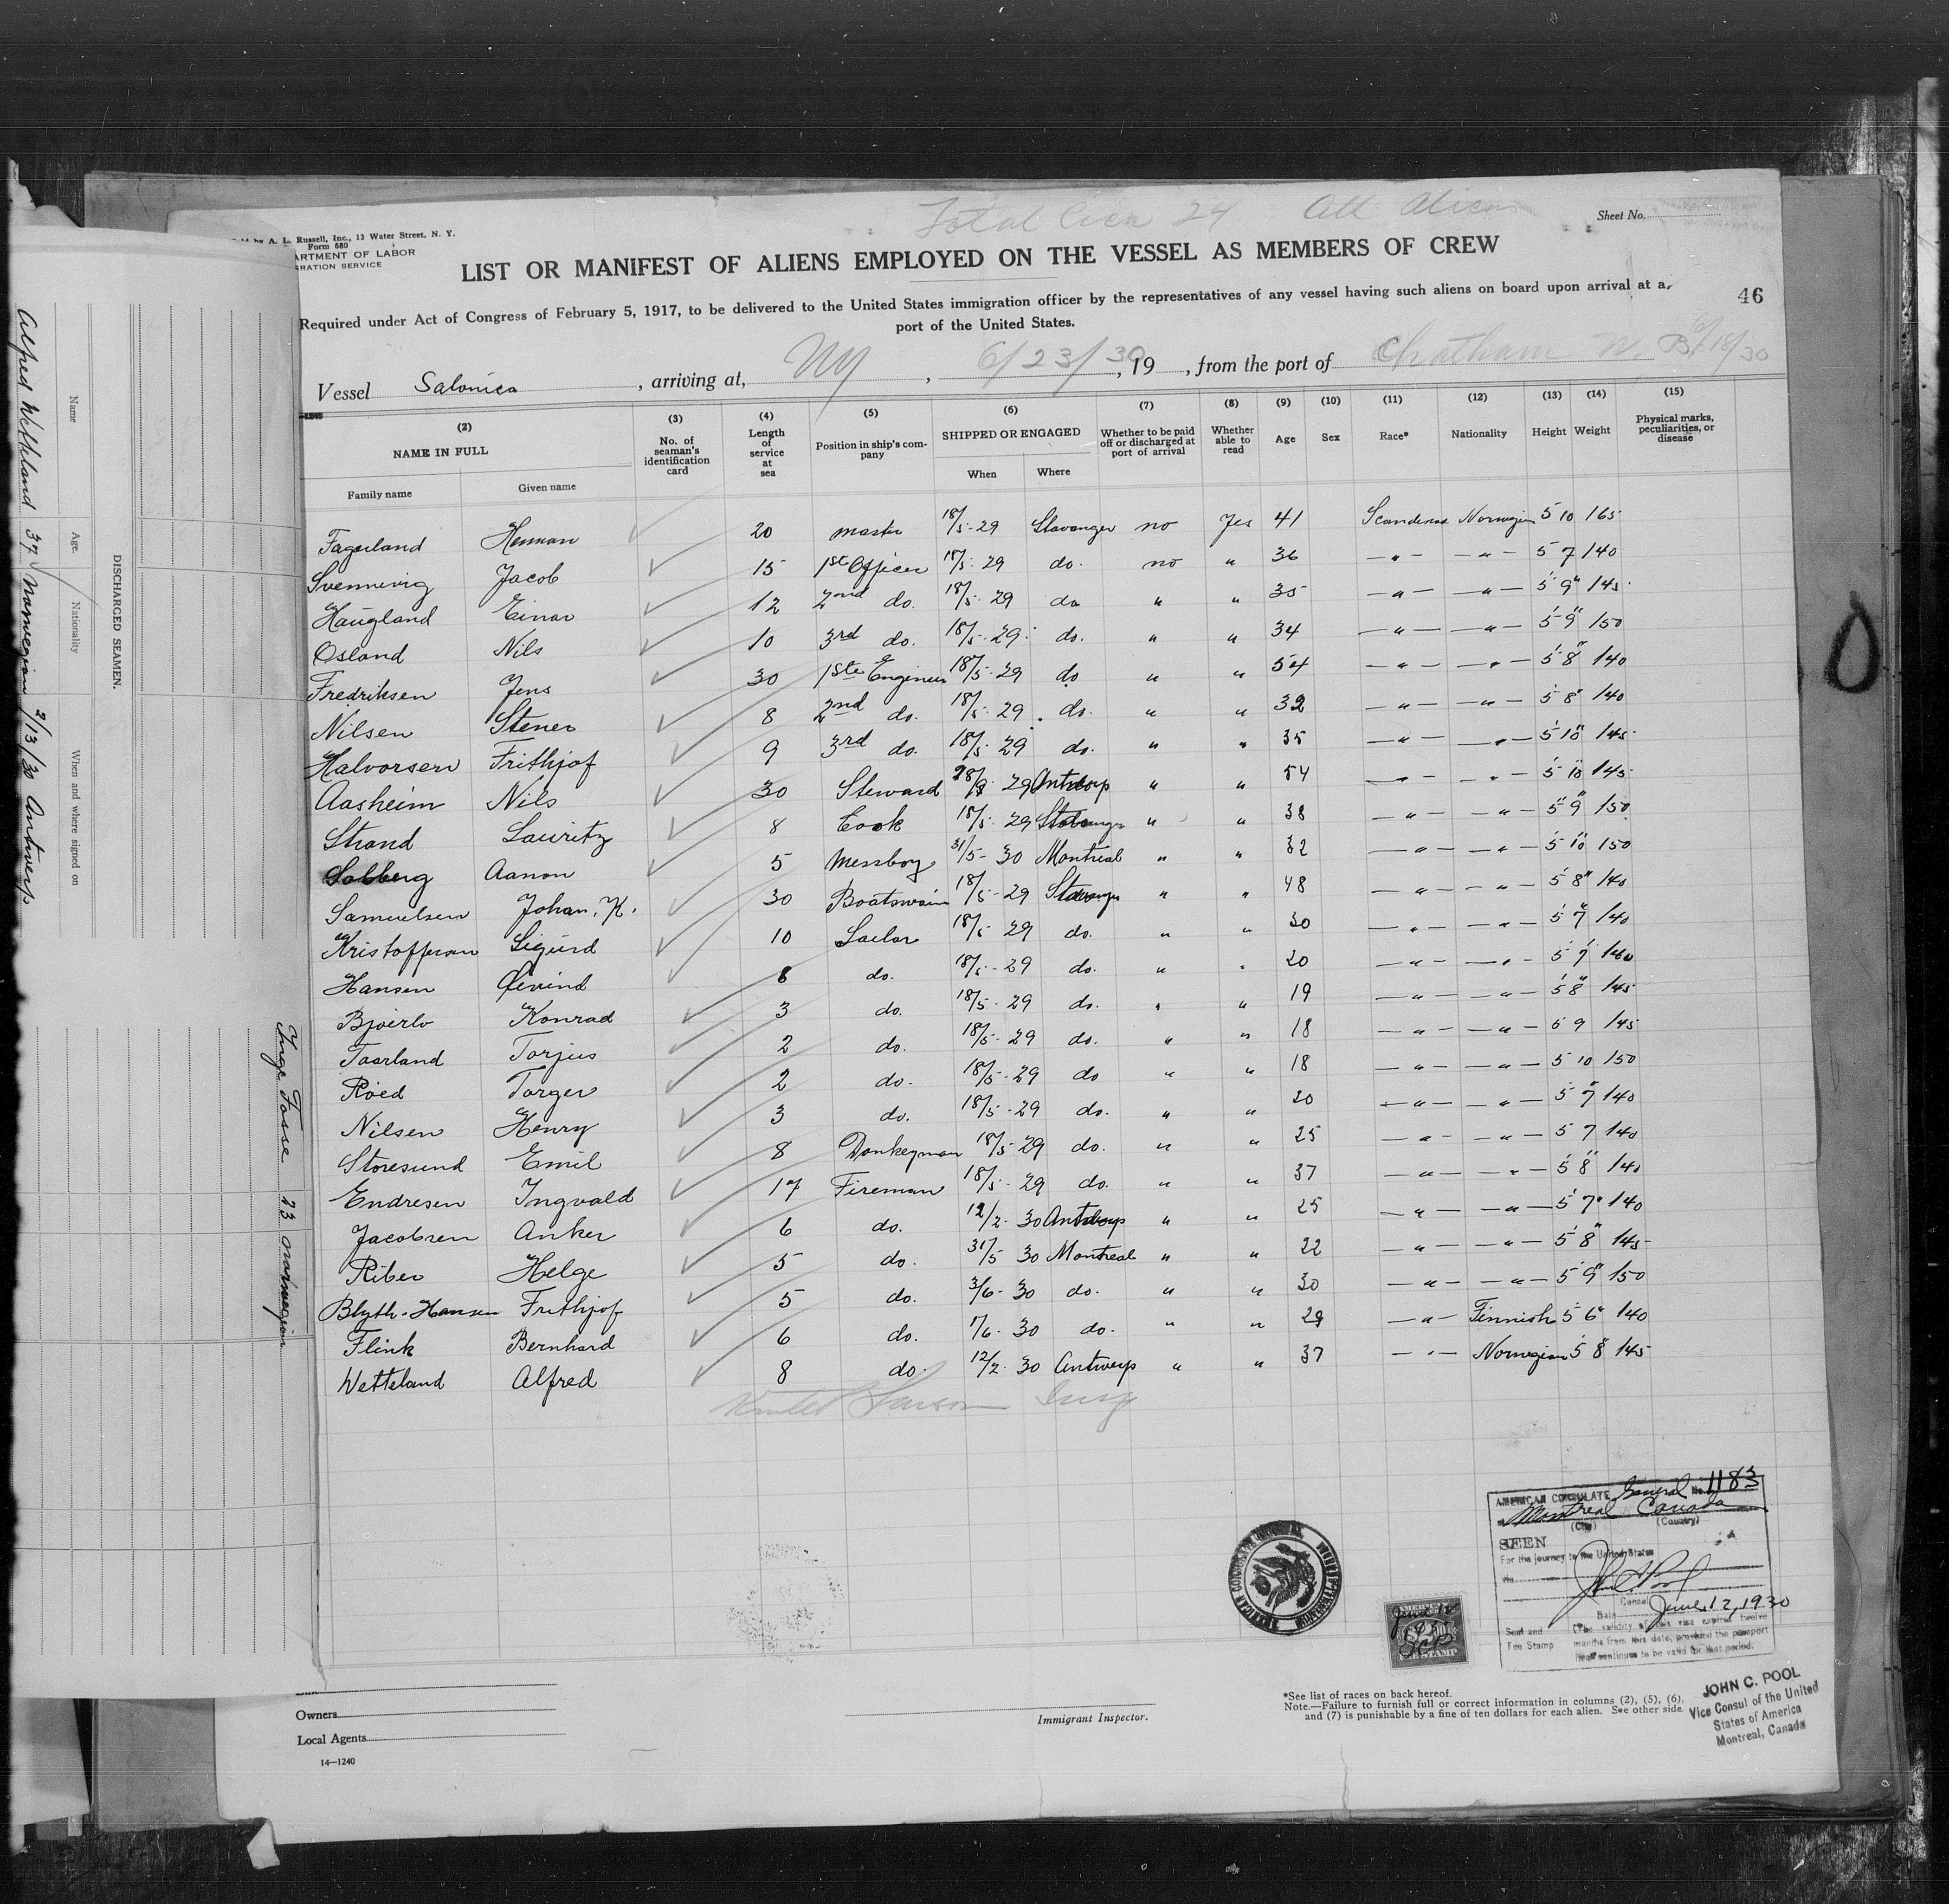 Total Crew 24 All Aliens
Sheet No.
A. L. Russell, Inc., 13 Water Street, N. Y.
Form 680
ARTMENT OF LABOR
GRATION SERVICE
LIST OR MANIFEST OF ALIENS EMPLOYED ON THE VESSEL AS MEMBERS OF CREW
46
Required under Act of Congress of February 5, 1917, to be delivered to the United States immigration officer by the representatives of any vessel having such aliens on board upon arrival at a
port of the United States.
Vessel Salonica, arriving at, NY, 6/23/30, 19 , from the port of Chatham N. B. 6/18/30
(2) (3) (4) (5) (6) (7) (8) (9) (10) (11) (12) (13) (14) (15)
NAME IN FULL No. of seaman's identification card Length of service at sea Position in ship's company SHIPPED OR ENGAGED Whether to be paid off or discharged at port of arrival Whether able to read Age Sex Race* Nationality Height Weight Physical marks, peculiarities, or disease
Family name Given name When Where
Fagerland Herman 20 master 18/5-29 Stavanger no Yes 41 Scandinav Norwegian 5 10 165
Svennevig Jacob 15 1st Officer 18/5-29 do. no " 36 — " — — " — 5 7 140
Haugland Einar 12 2nd do. 18/5-29 do " " 35 — " — — " — 5' 9" 145
Osland Nils 10 3rd do. 18/5-29 do. " " 34 — " — — " — 5' 9" 150
Fredriksen Jens 30 1ste Engineer 18/5-29 do " " 54 — " — — " — 5' 8" 140
Nilsen Stener 8 2nd do. 18/5-29 do. " " 32 — " — — " — 5 8" 140
Halvorsen Frithjof 9 3rd do. 18/5-29 do. " " 35 — " — — " — 5' 10" 145
Aasheim Nils 30 Steward 28/8-29 Antwerp " " 54 — " — — " — 5' 10" 145
Strand Lauritz 8 Cook 18/5-29 Stavanger " " 38 — " — — " — 5' 9" 150
Solberg Aanon 5 Messboy 31/5-30 Montreal " " 32 — " — — " — 5 10" 150
Samuelsen Johan. K. 30 Boatswain 18/5-29 Stavanger " " 48 — " — — " — 5' 8" 140
Kristoffersen Sigurd 10 Sailor 18/5-29 do. " " 30 — " — — " — 5' 7" 140
Hansen Øivind 6 do. 18/5-29 do. " " 20 — " — — " — 5' 7' 140
Bjoerlo Konrad 3 do. 18/5-29 do. " " 19 — " — — " — 5' 8" 145
Taarland Torjus 2 do. 18/5-29 do. " " 18 — " — — " — 5 9 145
Röed Torger 2 do. 18/5-29 do " " 18 — " — — " — 5 10 150
Nilsen Henry 3 do. 18/5-29 do. " " 20 — " — — " — 5 7" 140
Storesund Emil 8 Donkeyman 18/5-29 do. " " 25 — " — — " — 5 7 140
Endresen Ingvald 17 Fireman 18/5-29 do. " " 37 — " — — " — 5' 8" 140
Jacobsen Anker 6 do. 12/2-30 Antwerp " " 25 — " — — " — 5' 7" 140
Riber Helge 5 do. 31/5 30 Montreal " " 22 — " — — " — 5' 8" 145
Blyth-Hansen Frithjof 5 do. 3/6-30 do. " " 30 — " — — " — 5' 9" 150
Flink Bernhard 6 do. 7/6-30 do. " " 29 — " — Finnish 5' 6" 140
Wetteland Alfred 8 do. 12/2-30 Antwerp " " 37 — " — Norwegian 5' 8" 145
AMERICAN CONSULATE General No. 1183
at Montreal Canada
(City) (Country)
SEEN
For the journey to the United States
via
Consul
Date June 12, 1930
Seal and
Fee Stamp
(The validity of this visa expires twelve
months from this date, provided the passport
continues to be valid for that period.
June 12
FEE STAMP
JOHN C. POOL
Vice Consul of the United
States of America
Montreal, Canada
*See list of races on back hereof.
Note.—Failure to furnish full or correct information in columns (2), (5), (6),
and (7) is punishable by a fine of ten dollars for each alien. See other side.
Owners
Local Agents
Immigrant Inspector.
14—1240
DISCHARGED SEAMEN.
Name Age. Nationality When and where signed on
Alfred Wethland 37 Norwegian 2/13/30 Antwerp
Inge Tosse 23 Norwegian